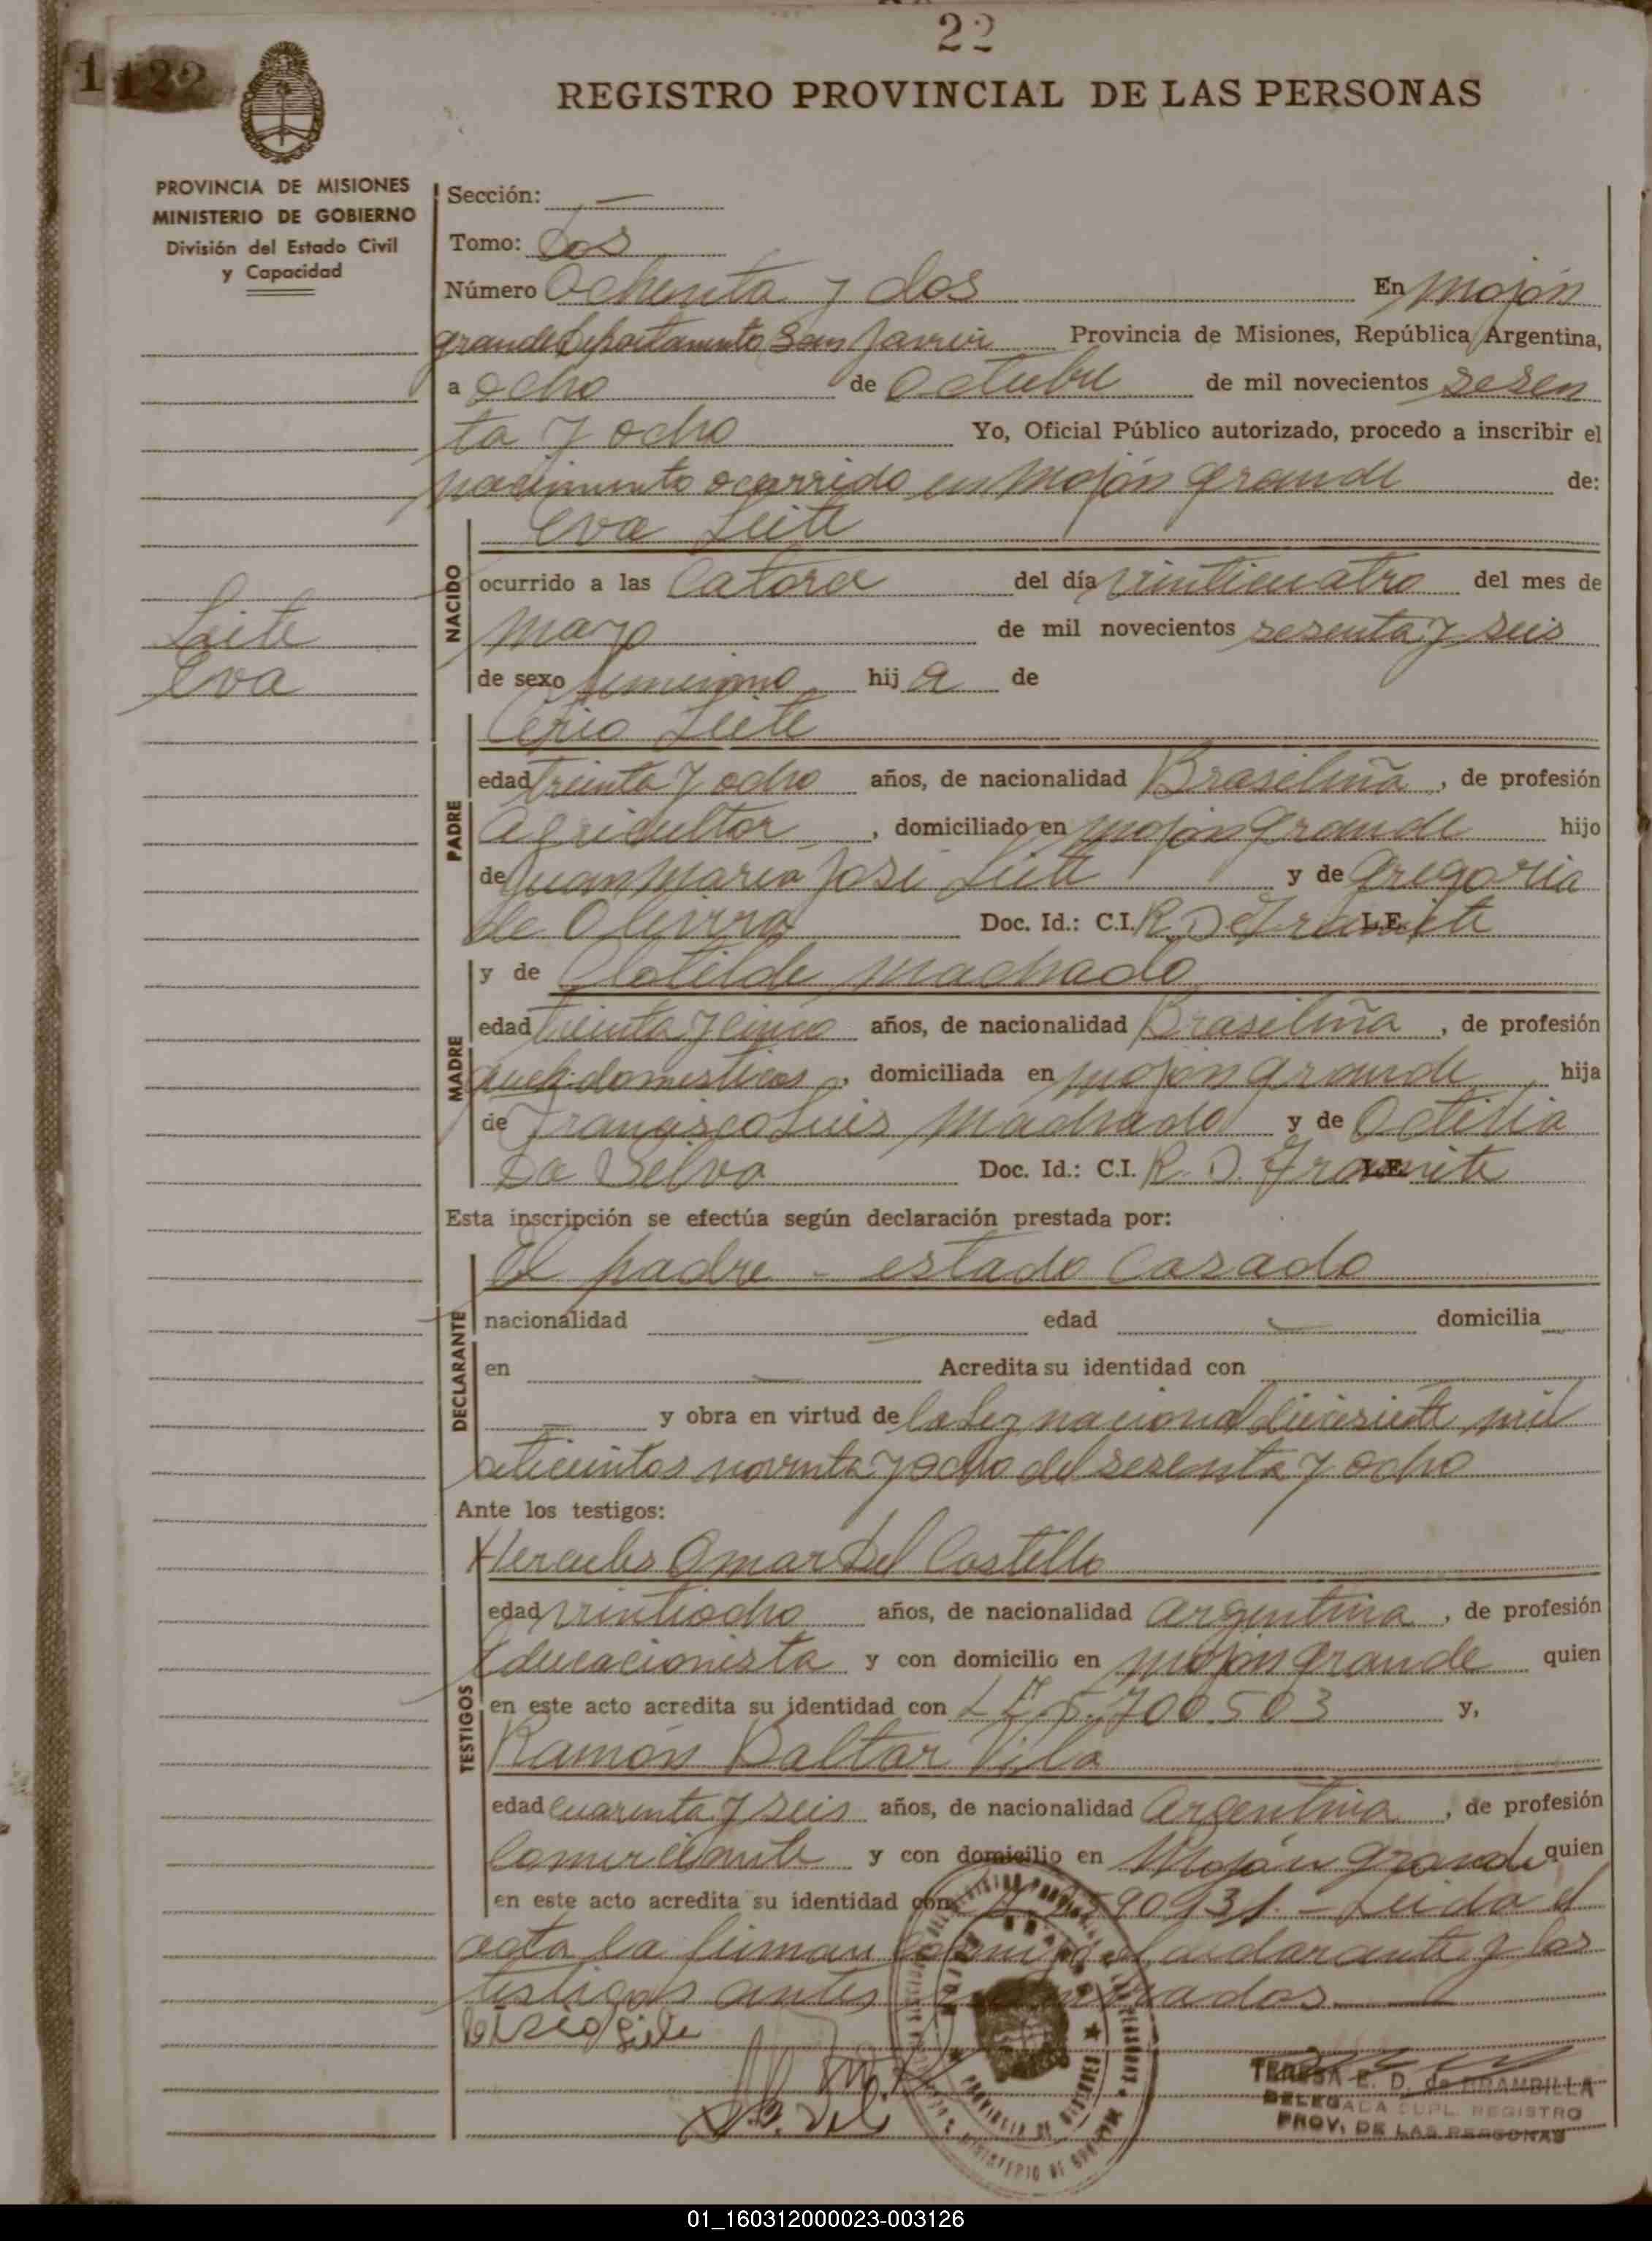 22
1122
REGISTRO PROVINCIAL DE LAS PERSONAS
PROVINCIA DE MISIONES
MINISTERIO DE GOBIERNO
División del Estado Civil
y Capacidad
Sección: —
Tomo: Dos
Número Ochenta y dos En Mojón
grande Departamento San Javier Provincia de Misiones, República Argentina,
a ocho de Octubre de mil novecientos sesen
ta y ocho Yo, Oficial Público autorizado, procedo a inscribir el
nacimiento ocurrido en Mojón grande de:
Eva Leite
NACIDO
ocurrido a las Catorce del día veinticuatro del mes de
Leite
Eva
de mil novecientos sesenta y seis
de sexo femenino hija de
Leite
PADRE
edad treinta y ocho años, de nacionalidad Brasileña, de profesión
agricultor, domiciliado en Mojón grande hijo
de Juan María José Leite y de Gregoria
de Doc. Id.: C.I. R. D Tramite L.E.
MADRE
y de Clotilde Machado
edad treinta y cinco años, de nacionalidad Brasileña, de profesión
domesticos, domiciliada en Mojón grande hija
de Francisco Luis Machado y de
Da Selva Doc. Id.: C.I. R. D. Tramite L.E.
Esta inscripción se efectúa según declaración prestada por:
DECLARANTE
El padre - estado Casado
nacionalidad — edad — domicilia
en — Acredita su identidad con
— y obra en virtud de la Ley nacional diecisiete mil
noventa y ocho del sesenta y ocho
Ante los testigos:
TESTIGOS
Hercules Omar Del Castillo
edad veintiocho años, de nacionalidad argentina, de profesión
Educacionista y con domicilio en Mojón grande quien
en este acto acredita su identidad con L E. 5.700.503 y,
Ramón Baltar Vila
edad cuarenta y seis años, de nacionalidad Argentina, de profesión
Comerciante y con domicilio en Mojón grande quien
en este acto acredita su identidad con - Leida el
acta la firman conmigo el declarante y los
testigos antes
Leite
TERESA E. D. de BRAMBILLA
DELEGADA SUPL. REGISTRO
PROV. DE LAS PERSONAS
01_160312000023-003126